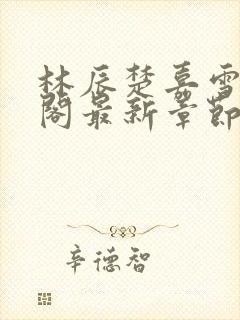 林辰楚嘉雪
阁最新章节
辛德智